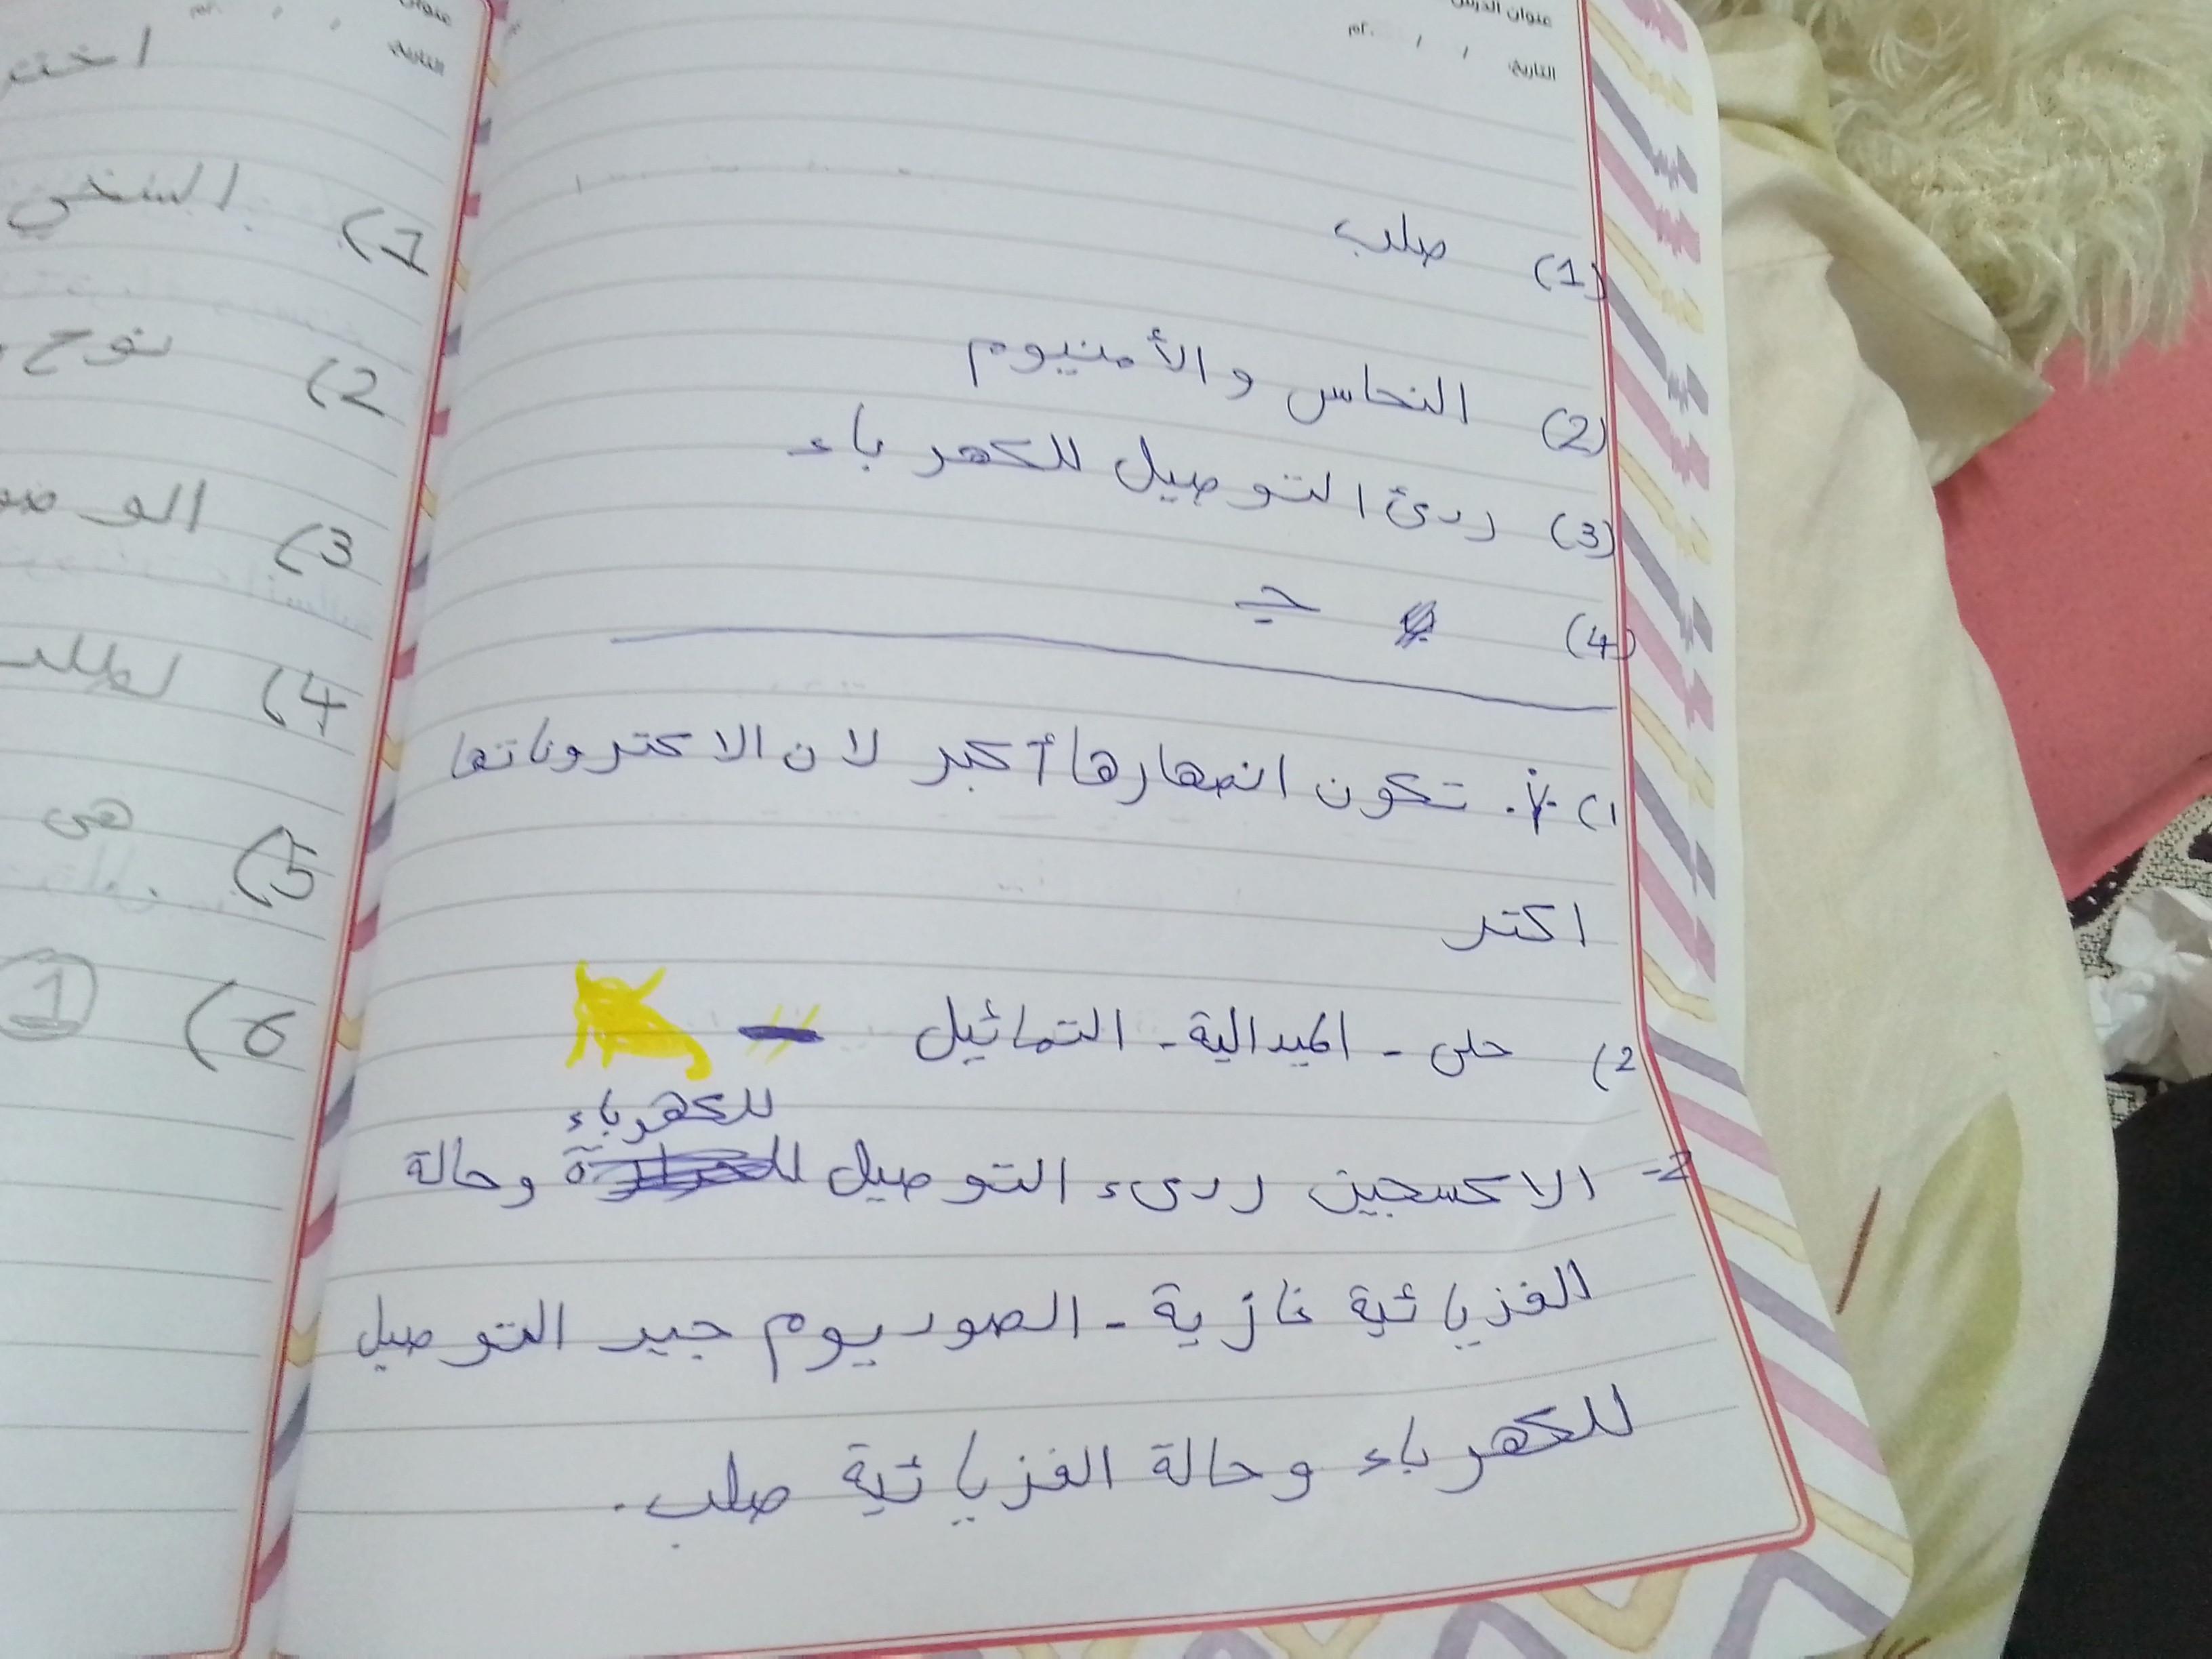 عنوان الدرس
التاريخ: / / ٢٠م
(1) صلب
(2) النحاس والأمنيوم
(3) ردئ التوصيل للكهرباء
(4) جـ
1) تكون انصهارها أكبر لان الاكتروناتها
اكتر
2) حلى - الميدالية - التماثيل
للكهرباء
2- الاكسجين ردىء التوصيل وحالة
الفزيائية غازية - الصوديوم جيد التوصيل
للكهرباء وحالة الفزيائية صلب.
عنوان
التاريخ: / / ٢٠م
اختر
1)
2) نوح
3)
4)
5) هى
6) 1